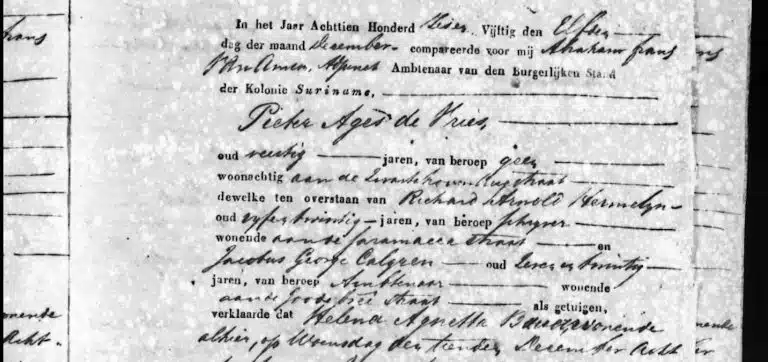 In het Jaar Achttien Honderd Zes en Vijftig den Elfden
dag der maand December compareerde voor mij Abraham frans
Adjunct Ambtenaar van den Burgerlijken Stand
der Kolonie Suriname,
Pieter Ages de Vries,
oud veertig jaren, van beroep geen
woonachtig aan de straat
dewelke ten overstaan van Richard Arnold Hermelyn
oud vyfentwintig jaren, van beroep schryver
wonende aan de Saramacca straat en
Jacobus George Calgren oud Zeven en twintig
jaren, van beroep Ambtenaar wonende
aan de Joode bree straat als getuigen,
verklaarde dat Helena Agnetta wonende
alhier, op Woensdag den tienden December Acht
frans
wonende
Acht-